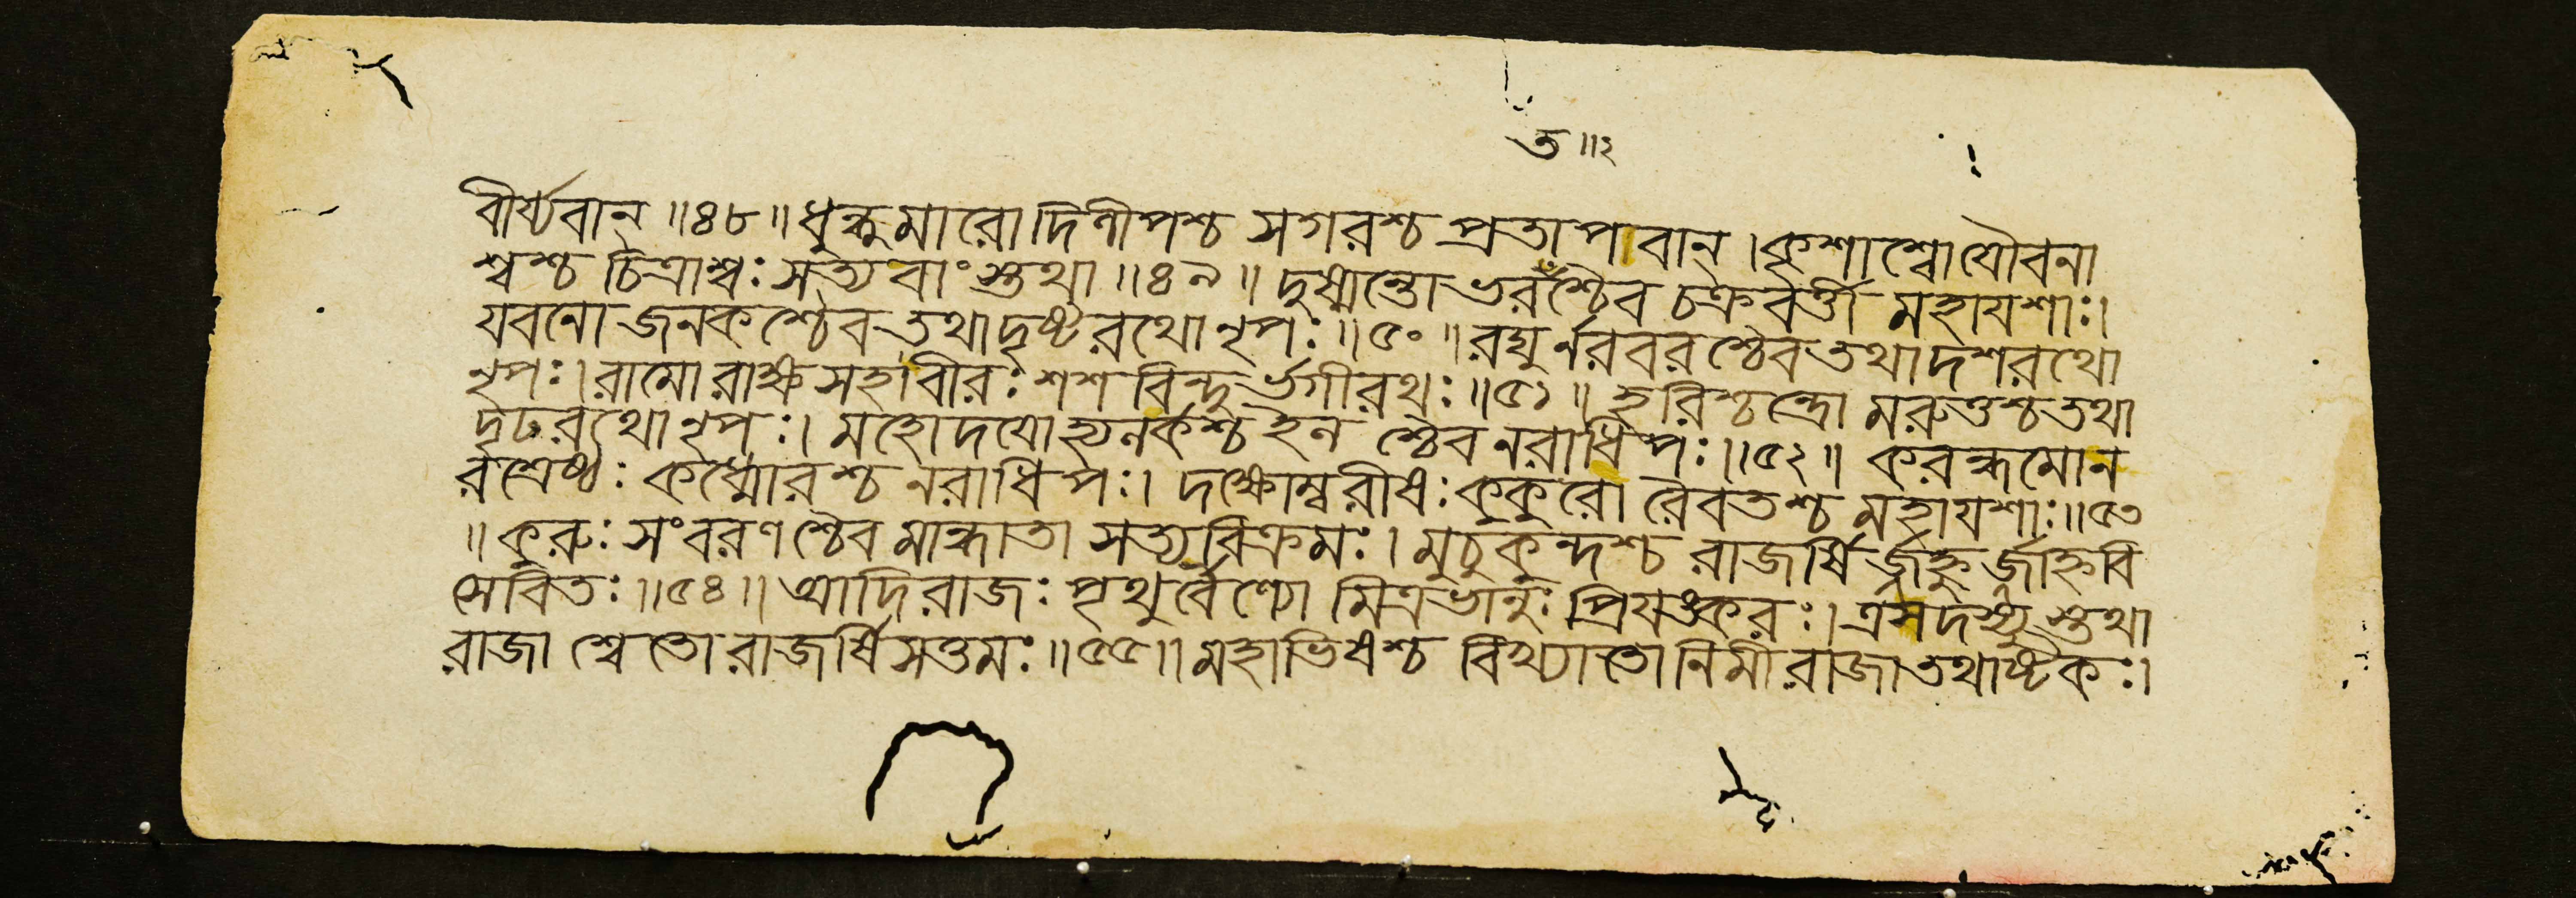 ত॥২
বীর্য্যবান্ ॥৪৮॥ ধুন্ধুমারোদিলীপশ্চ সগরশ্চ প্রতাপাবান্ । কৃশাশ্বোযৌবনা
শ্বশ্চ চিত্রাশ্বঃ সত্যবাংস্তথা ॥৪৯॥ দুষ্মন্তোভরতঁশ্চৈব চক্রবর্ত্তী মহাযশাঃ।
যবনো জনকশ্চৈব তথাদৃষ্টরথোনৃপঃ ॥৫০॥ রঘুর্নরবরশ্চৈব তথাদশরথো
নৃপঃ। রামোরাক্ষসহাবীরঃ শশবিন্দুর্ভগীরথঃ ॥৫১॥ হরিশ্চন্দ্রো মরুত্তশ্চতথা
দৃঢরথোনৃপঃ। মহোদযোহ্যনর্কশ্চহৈন শ্চৈবনরাধিপঃ ॥৫২॥ করন্ধমোন
রশ্রেষ্ঠঃ কধ্মোরশ্চ নরাধিপঃ। দক্ষোম্বরীষঃকুকুরো রৈবতশ্চ মহাযশাঃ ॥৫৩
॥ কুরুঃ সংবরণশ্চৈব মান্ধাতা সত্যবিক্রমঃ। মুচুকুন্দশ্চ রাজর্ষির্জহ্নুর্জাহ্নবি
সেবিতঃ ॥৫৪॥ আদিরাজঃ পৃথুর্বৈণ্যো মিত্রভানুঃ প্রিযঙ্করঃ। ত্রসদস্যুস্তথা
রাজা শ্বেতোরাজর্ষিসত্তমঃ ॥৫৫॥ মহাভিষশ্চ বিখ্যাতোনিমীরাজাতথাষ্টকঃ।